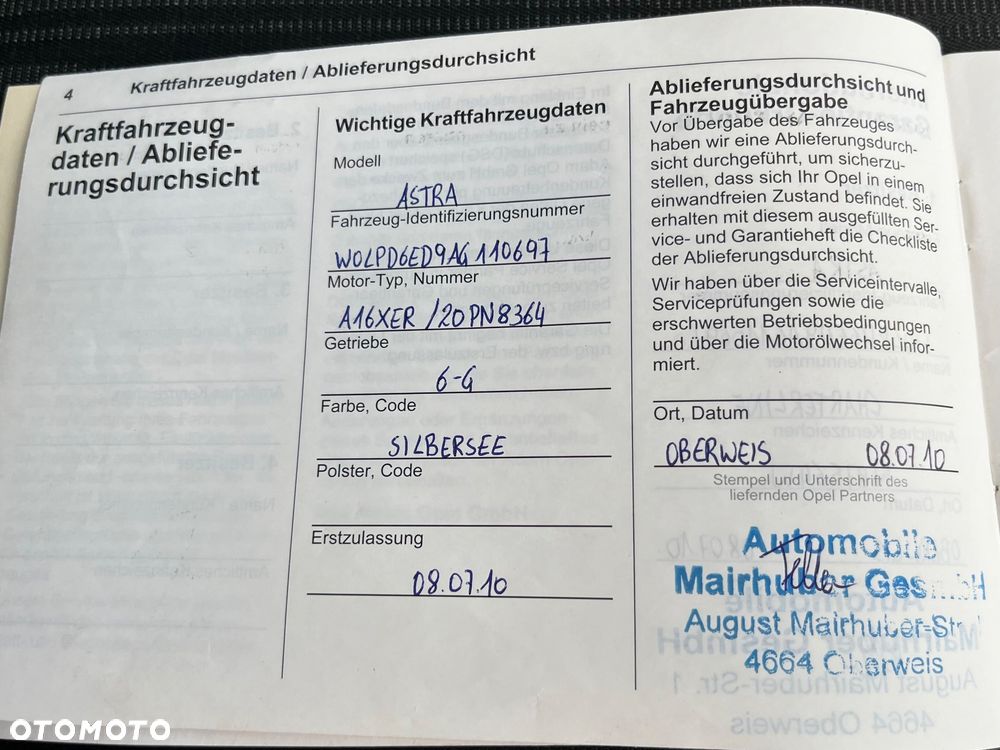 4
Kraftfahrzeugdaten / Ablieferungsdurchsicht
Kraftfahrzeug-
daten / Abliefe-
rungsdurchsicht
Wichtige Kraftfahrzeugdaten
Modell
ASTRA
Fahrzeug-Identifizierungsnummer
WOLPD6ED9AG110697
Motor-Typ, Nummer
A16XER / 20PN8364
Getriebe
6-G
Farbe, Code
SILBERSEE
Polster, Code
Erstzulassung
08.07.10
Ablieferungsdurchsicht und
Fahrzeugübergabe
Vor Übergabe des Fahrzeuges
haben wir eine Ablieferungsdurch-
sicht durchgeführt, um sicherzu-
stellen, dass sich Ihr Opel in einem
einwandfreien Zustand befindet. Sie
erhalten mit diesem ausgefüllten Ser-
vice- und Garantieheft die Checkliste
der Ablieferungsdurchsicht.
Wir haben über die Serviceintervalle,
Serviceprüfungen sowie die
erschwerten Betriebsbedingungen
und über die Motorölwechsel infor-
miert.
Ort, Datum
OBERWEIS 08.07.10
Stempel und Unterschrift des
liefernden Opel Partners
Automobile
Mairhuber GesmbH
August Mairhuber-Str.
4664 Oberweis
OTOMOTO